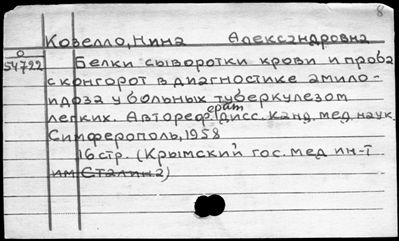 8
Козелло, Нина Александровна
О
54722
Белки сыворотки крови и проба
с конгорот в диагностике амило-
идоза у больных туберкулезом
легких. Автореферат дисс. канд. мед. наук.
Симферополь, 1958
16 стр. (Крымский гос. мед ин-т
им Сталина)